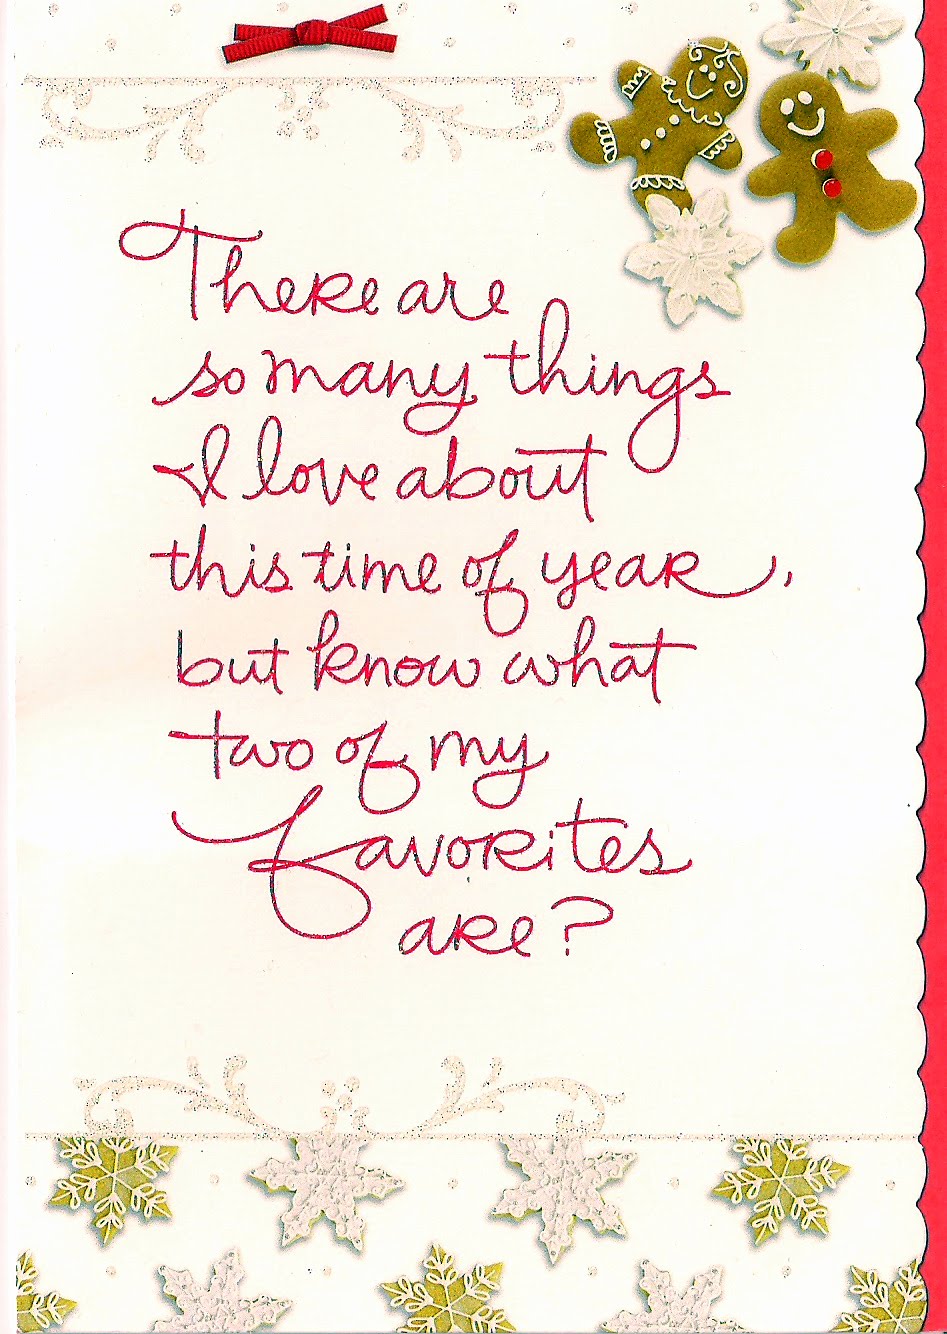 There are
so many things
I love about
this time of year,
but know what
two of my
favorites
are?